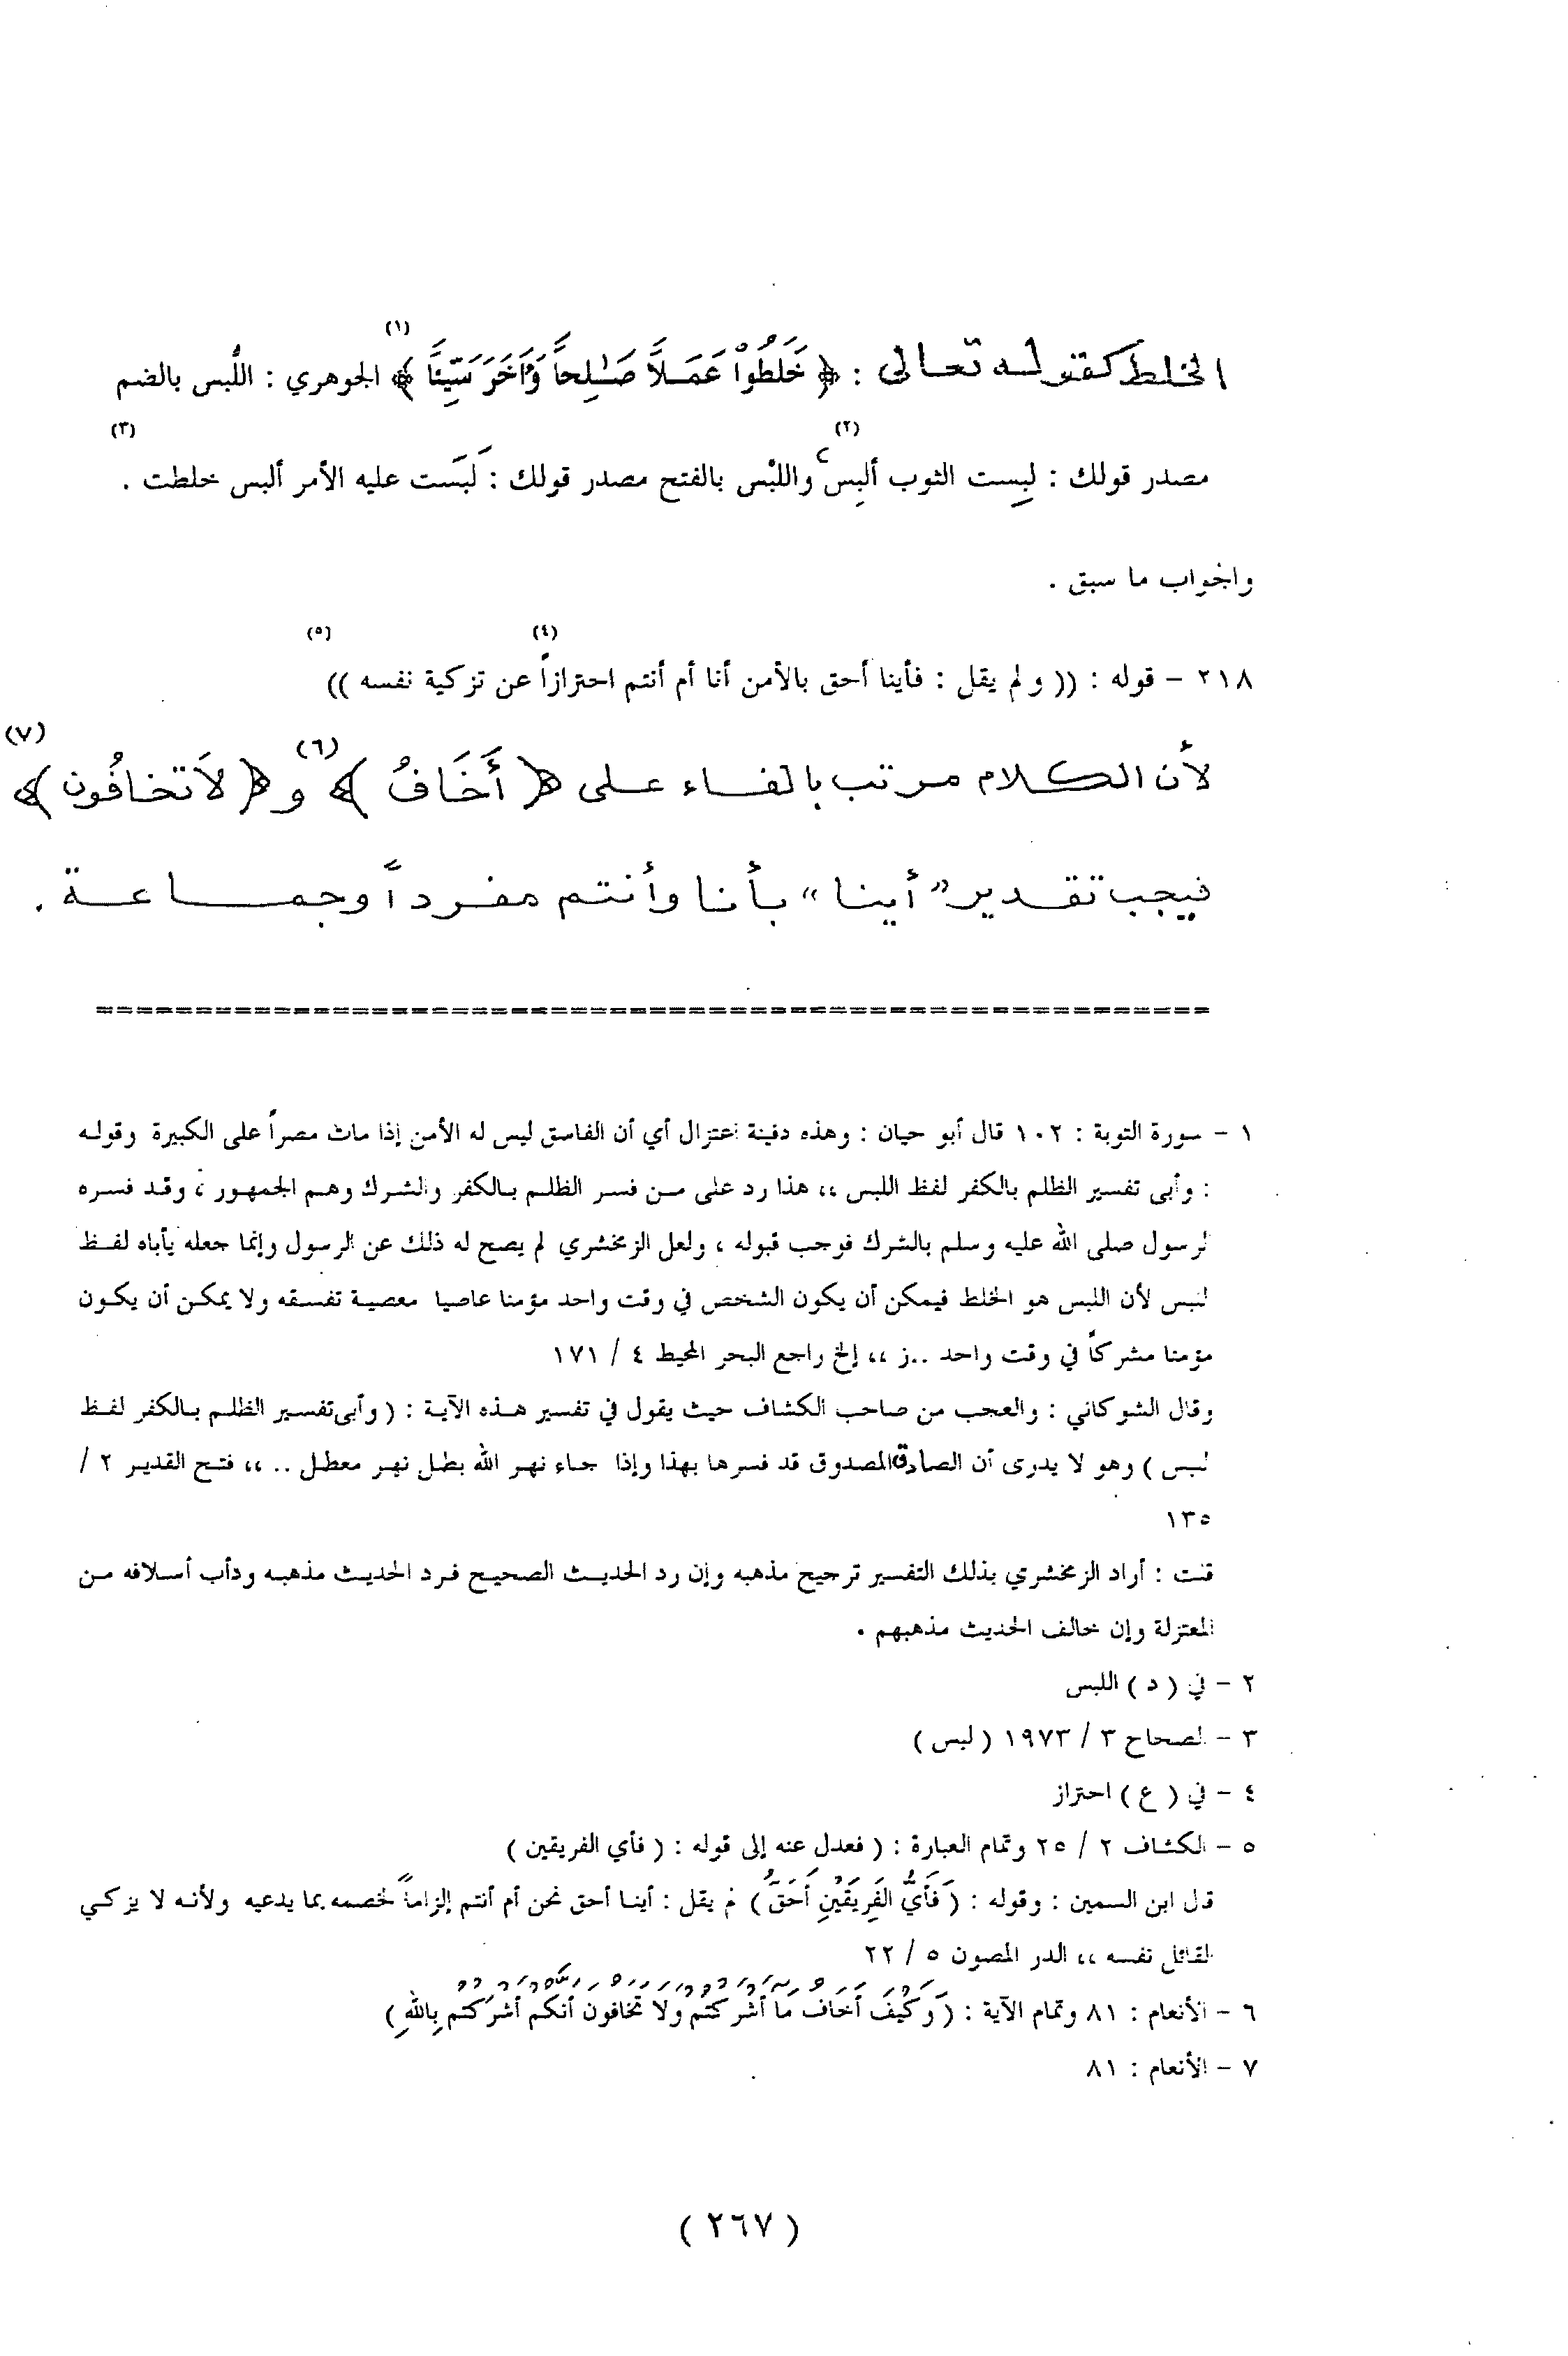 الخلط كقوله تعالى : ﴿ خَلَطُواْ عَمَلاً صَـٰلِحاً وَءَاخَرَ سَيِّئاً ﴾ (١) الجوهري : اللُّبس بالضم
مصدر قولك : لبِست الثوب ألبس (٢) واللبْس بالفتح مصدر قولك : لَبَست عليه الأمر ألبس خلطت . (٣)
والجواب ما سبق .
٢١٨ - قوله : (( و لم يقل : فأينا أحق بالأمن أنا أم أنتم احترازاً (٤) عن تزكية نفسه )) (٥)
لأن الكلام مرتب بالفاء على ﴿ أَخَافُ ﴾ (٦) و ﴿ لَا تخافُون ﴾ (٧)
فيجب تقدير " أينا " بأنا وأنتم مفرداً وجماعة .
١ - سورة التوبة : ١٠٢ قال أبو حيان : وهذه دفينة اعتزال أي أن الفاسق ليس له الأمن إذا مات مصراً على الكبيرة وقوله
: وأبى تفسير الظلم بالكفر لفظ اللبس ،، هذا رد على من فسر الظلم بالكفر والشرك وهم الجمهور ، وقد فسره
الرسول صلى الله عليه وسلم بالشرك فوجب قبوله ، ولعل الزمخشري لم يصح له ذلك عن الرسول وإنما جعله يأباه لفظ
اللبس لأن اللبس هو الخلط فيمكن أن يكون الشخص في وقت واحد مؤمنا عاصيا معصية تفسقه ولا يمكن أن يكون
مؤمنا مشركاً في وقت واحد ..ز ،، إلخ راجع البحر المحيط ٤ / ١٧١
وقال الشوكاني : والعجب من صاحب الكشاف حيث يقول في تفسير هذه الآية : ( وأبى تفسير الظلم بالكفر لفظ
لبس ) وهو لا يدرى أن الصادق المصدوق قد فسرها بهذا وإذا جاء نهر الله بطل نهر معطل .. ،، فتح القدير ٢ /
١٣٥
قلت : أراد الزمخشري بذلك التفسير ترجيح مذهبه وإن رد الحديث الصحيح فرد الحديث مذهبه ودأب أسلافه من
المعتزلة وإن خالف الحديث مذهبهم .
٢ - في ( د ) اللبس
٣ - الصحاح ٣ / ١٩٧٣ ( لبس )
٤ - في ( ع ) احتراز
٥ - الكشاف ٢ / ٢٥ وتمام العبارة : ( فعدل عنه إلى قوله : ( فأي الفريقين )
قال ابن السمين : وقوله : ( فَأَيُّ الفَرِيقَيْنِ أَحَقُّ ) لم يقل : أينا أحق نحن أم أنتم إلزاماً لخصمه بما يدعيه ولأنه لا يزكي
القائل نفسه ،، الدر المصون ٥ / ٢٢
٦ - الأنعام : ٨١ وتمام الآية : ( وَكَيْفَ أَخَافُ مَا أَشْرَكْتُمْ وَلَا تَخَافُونَ أَنَّكُمْ أَشْرَكْتُم بِاللَّهِ )
٧ - الأنعام : ٨١
( ٢٦٧ )